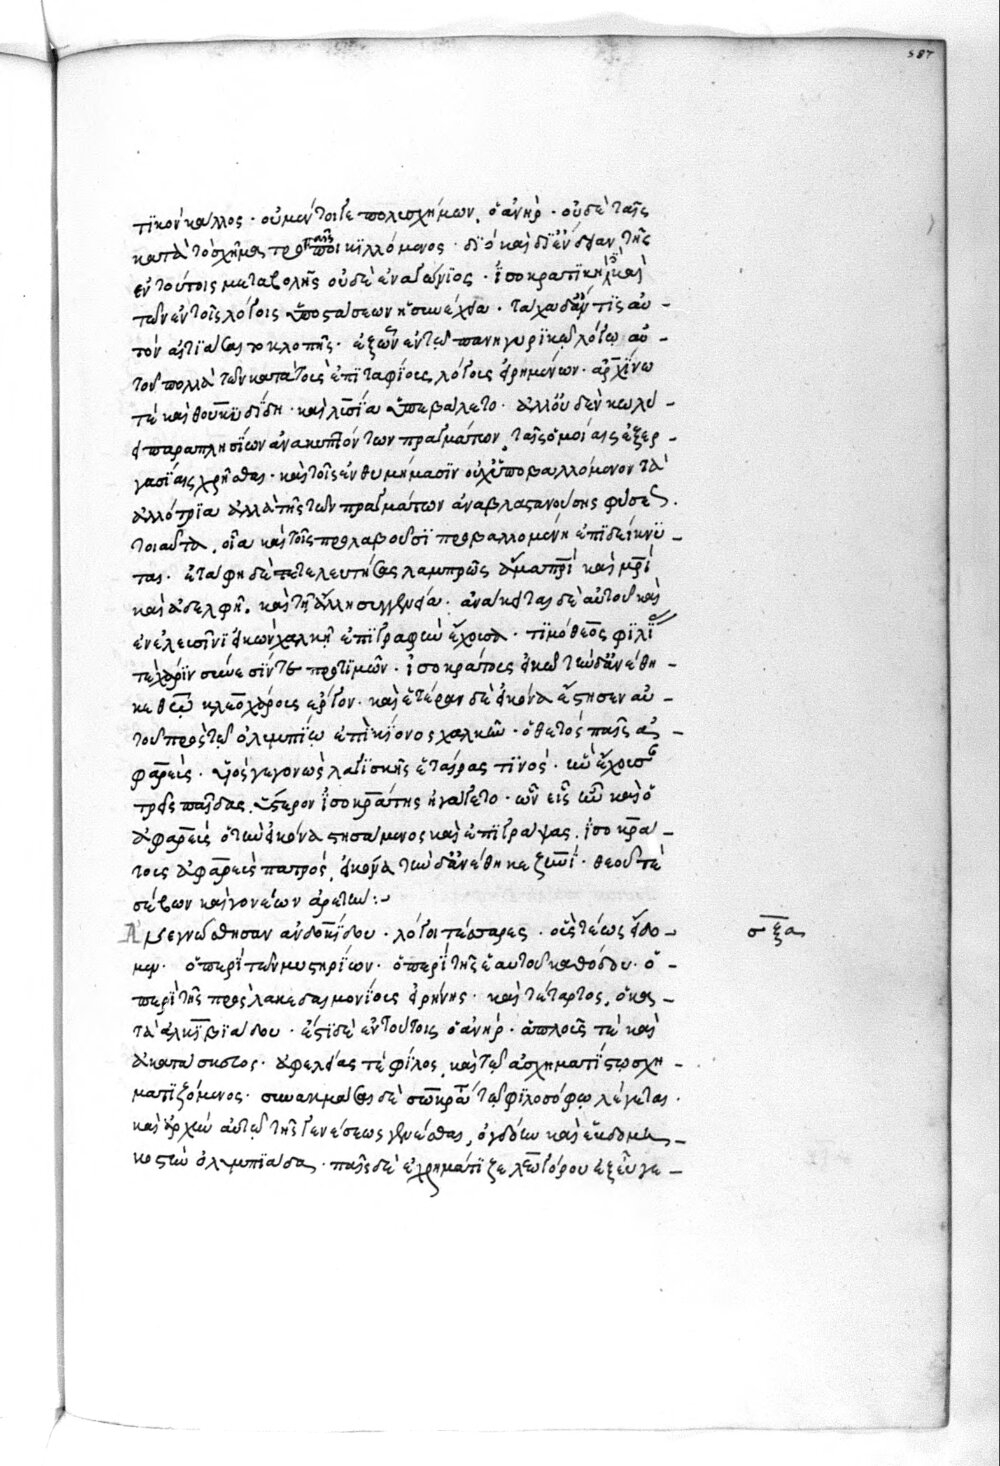 587
τϊκὸν κάλλος · οὐ μέν τοι γε πολυσχήμων, ὁ ἀνὴρ · οὐδὲ ταῖς
κατὰ τὸ σχῆμα τροπαῖς ποικϊλλόμενος · δϊὸ καὶ δϊ' ἔνδειαν, τῆς
ἐν τούτοις μεταβολῆς οὐδὲ ἐναγώνϊος · ἰσοκρατϊκὴ δὲ καὶ
τῶν ἐν τοῖς λόγοις ὑποστάσεων ἡ συνέχεια · τάχα δ' ἄν τϊς αὐ -
τὸν αἰτϊάσαιτο κλοπῆς · ἐξ ὧν ἐν τῷ πανηγυρϊκῷ λόγῳ αὐ -
τοῦ πολλὰ τῶν κατὰ τοὺς ἐπϊταφίους λόγους εἰρημένων · ἀρχίνῳ
τὲ καὶ θουκϋδίδῃ · καὶ λυσίᾳ ὑπεβάλετο · ἀλλ' οὐδὲν κωλύ
ει παραπλησίων ἀνακυπτόντων πραγμάτων, ταῖς ὁμοίαις ἐξερ -
γασίαις χρῆσθαι · καὶ τοῖς ἐνθυμήμασϊν οὐχ ὑποβαλλόμενον τὰ
ἀλλότρϊα ἀλλὰ τῆς τῶν πραγμάτων ἀναβλαστανούσης φύσεως .
τοιαῦτα, οἷα καὶ τοῖς προλαβοῦσϊ προβαλλομένη ἐπϊδείκνϋ -
ται · ἐτάφη δὲ τετελευτήσας λαμπρῶς ἅμα πρὶ καὶ μρὶ
καὶ ἀδελφῇ · καὶ τῇ ἄλλῃ συγγενείᾳ · ἀνάκειται δὲ αὐτοῦ καὶ
ἐν ἐλευσῖνϊ εἰκὼν χαλκῆ ἐπϊγραφὴν ἔχουσα · τϊμόθεος φϊλί
τε χάρϊν σύνεσίν τε προτϊμῶν · ἰσοκράτους εἰκὼ τήνδ' ἀνέθη -
κε θεῷ κλεοχάρους ἔργον · καὶ ἑτέραν δὲ εἰκόνα ἔστησεν αὐ
τοῦ πρὸς τῷ ὀλυμπίῳ ἐπὶ κίονος χαλκῆν · ὁ θετὸς παῖς ἀ -
φαρεύς · ὃς γεγονὼς λαγϊσκῆς ἑταίρας τϊνὸς · ἣν ἔχουσαν
τρεῖς παῖδας, ὕστερον ἰσοκράτης ἠγάγετο · ὧν εἷς ἦν καὶ ὁ
ἀφαρεὺς ὁ τὴν εἰκόνα στησάμενος καὶ ἐπϊγράψας · ἰσοκρά -
τους ἀφαρεὺς πατρὸς, εἰκόνα τήνδ' ἀνέθηκε ζηνί · θεούς τὲ
σέβων καὶ γονέων ἀρετήν :-
Ἀνεγνώσθησαν ἀνδοκίδου · λόγοι τέσσαρες · οὓς τέως ἴσο -
μεν · ὁ περὶ τῶν μυστηρίων · ὁ περὶ τῆς ἑαυτοῦ καθόδου · ὁ -
περὶ τῆς πρὸς λακεδαιμονίους εἰρήνης · καὶ τέταρτος, ὁ κα -
τὰ ἀλκϊβϊάδου · ἔστϊ δὲ ἐν τούτοις ὁ ἀνὴρ · ἁπλοῦς τὲ καὶ
ἀκατάσκευος · ἀφελείας τὲ φίλος, καὶ τῷ ἀσχηματίστῳ σχη -
ματϊζόμενος · συνακμάσαι δὲ σωκράτει τῷ φϊλοσόφῳ λέγεται ·
καὶ ἀρχὴν αὐτῷ τῆς γενέσεως γενέσθαι, ὀγδόην καὶ ἑβδομη -
κοστὴν ὀλυμπϊάδα · παῖς δὲ ἐχρημάτϊζε λεωγόρου ἐξ εὐγε -
σ̅ξ̅α̅